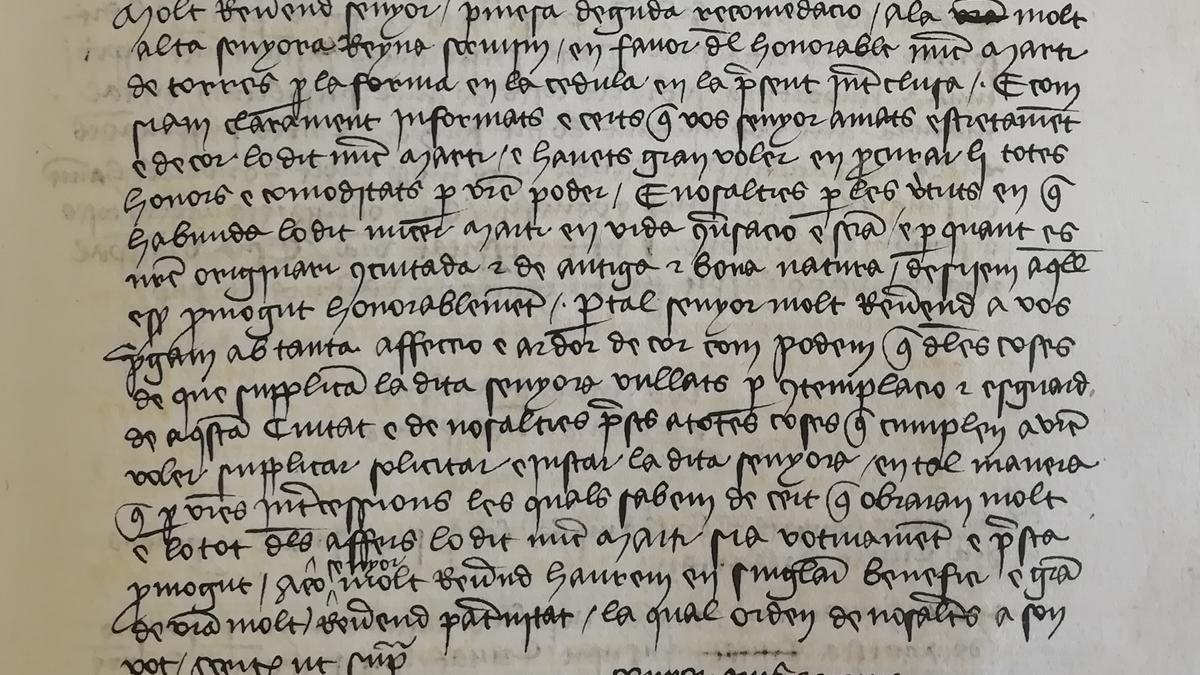 Molt Reuend senyor / p̃mesa deguda recomedacio / ala molt
alta senyora Reyna scriuim / en fauor dl̃ honorable mic̃ Marti
de torres p̱ la forma en la cedula en la p̃sent int̃clusa /. E com
siam clarament informats e certs q̃ vos senyor amats estretamẽt
e de cor lo dit mic̃ Marti / e hauets gran voler en ꝓcurar li totes
honors e comoditats ꝑ vr̃e poder / E nosaltres ꝑ les v̓tuts en q̃
habunda lo dit micer Marti en vida ꝯũsacio e sciã / e ꝑ quant es
nr̃e originari ꝯciutada ⁊ de antiga ⁊ bona natura / desijem aq̃ll
ess̃ ꝓmogut honorablemẽt /. Ꝑ tal senyor molt Reuẽnd a vos
p̃gam ab tanta affeccio e ardor de cor com podem q̃ dles coses
de que supplicã la dita senyora vullats ꝑ ꝯtemplacio ⁊ esguard
de aq̃sta Ciutat e de nosaltres p̃ses a totes coses q̃ cumplen a vr̃e
voler supplicar solicitar e instar la dita senyora / en tal manera
q̃ ꝑ vr̃es int̃cessions les quals sabem de cert q̃ obraran molt
e lo tot dl̃s affers lo dit mic̃ Marti sia votiuamẽt e p̃sta
ꝓmogut / Aço senyor molt Reuẽnd haurem en singlar̃ benefici e grã
de vr̃a molt Reuẽnd pat̃nitat / la qual orden de nosalt̃s a son
vot / scrite ut sup̃